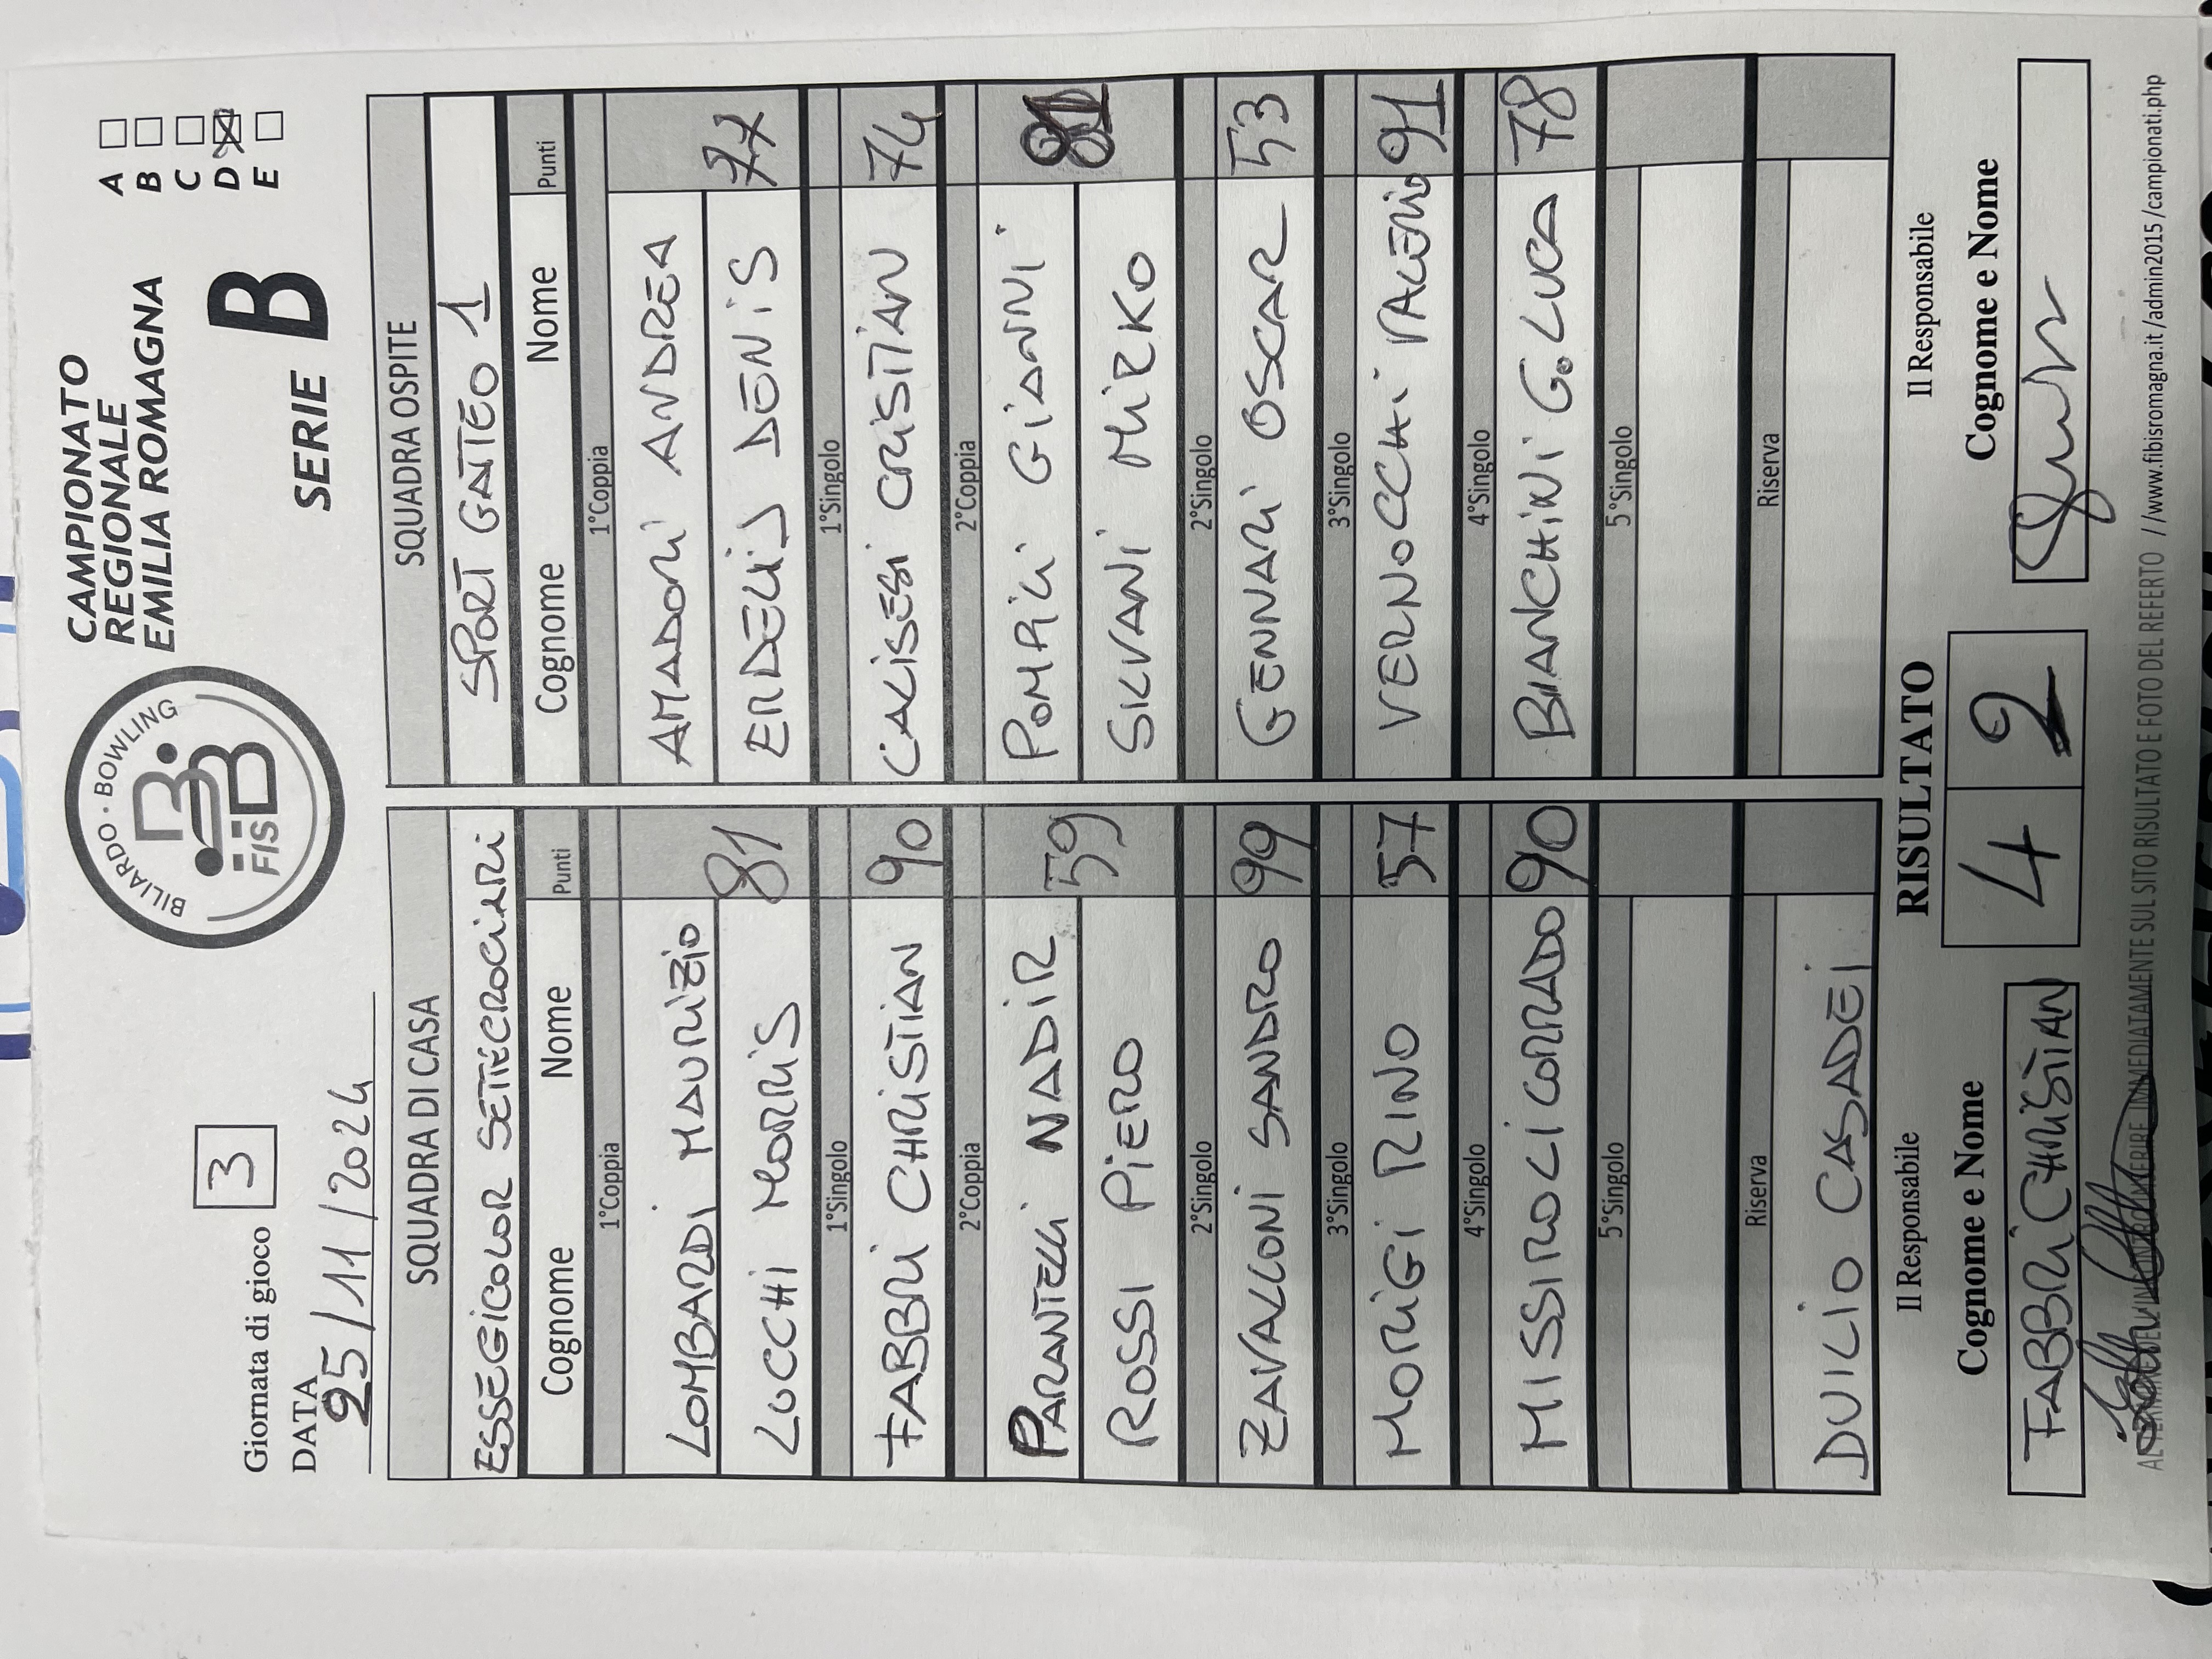 BILIARDO · BOWLING
FISBB
CAMPIONATO
REGIONALE
EMILIA ROMAGNA
SERIE B
A
B
C
D
E
Giornata di gioco 3
DATA
25/11/2024
SQUADRA DI CASA
ESSEGICOLOR SETTECROCIARI
Cognome Nome Punti
1°Coppia
LOMBARDI MAURIZIO
LUCCHI MORRIS 81
1°Singolo
FABBRI CHRISTIAN 90
2°Coppia
PARANTELLI NADIR
ROSSI PIERO 59
2°Singolo
ZAVALLONI SANDRO 99
3°Singolo
MORIGI RINO 57
4°Singolo
MISSIROLI CORRADO 90
5°Singolo
Riserva
DUILIO CASADEI
SQUADRA OSPITE
SPORT GATTEO 1
Cognome Nome Punti
1°Coppia
AMADORI ANDREA
ERDELIJ DENIS 77
1°Singolo
CALISESI CRISTIAN 74
2°Coppia
POMPILI GIANNI
SILVANI MIRKO 81
2°Singolo
GENNARI OSCAR 53
3°Singolo
VERNOCCHI VALERIO 91
4°Singolo
BIANCHINI G.LUCA 78
5°Singolo
Riserva
Il Responsabile
Cognome e Nome
FABBRI CHRISTIAN
RISULTATO
4 2
Il Responsabile
Cognome e Nome
IMMEDIATAMENTE SUL SITO RISULTATO E FOTO DEL REFERTO //www.fibisromagna.it/admin2015/campionati.php